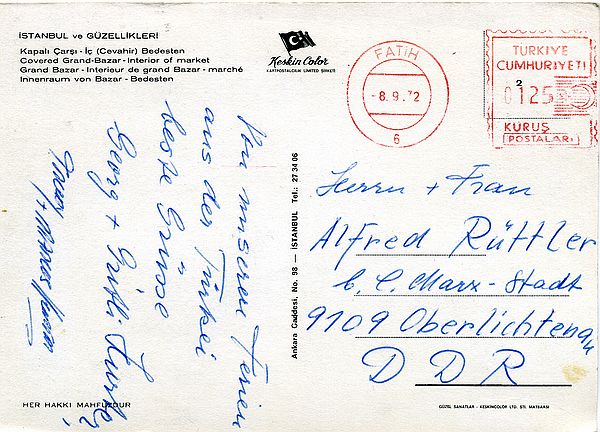 İSTANBUL ve GÜZELLİKLERİ
Kapalı Çarşı - İç (Cevahir) Bedesten
Covered Grand-Bazar - Interior of market
Grand Bazar - Interieur de grand Bazar - marché
Innenraum von Bazar - Bedesten
Keskin Color
KARTPOSTALCILIK LIMITED ŞİRKETİ
FATİH
-8.9.72
6
TÜRKİYE
CUMHURİYETİ
2
0125
KURUŞ
POSTALARI
Von unseren Ferien
aus der Türkei
beste Grüsse
Georg +
Ankara Caddesi, No. 98 — İSTANBUL Tel.: 27 34 06
Herrn + Frau
Alfred Rüttler
b. C. Marx-Stadt
9109 Oberlichtenau
DDR
HER HAKKI MAHFUZDUR
GÜZEL SANATLAR - KESKİNCOLOR LTD. ŞTİ. MATBAASI